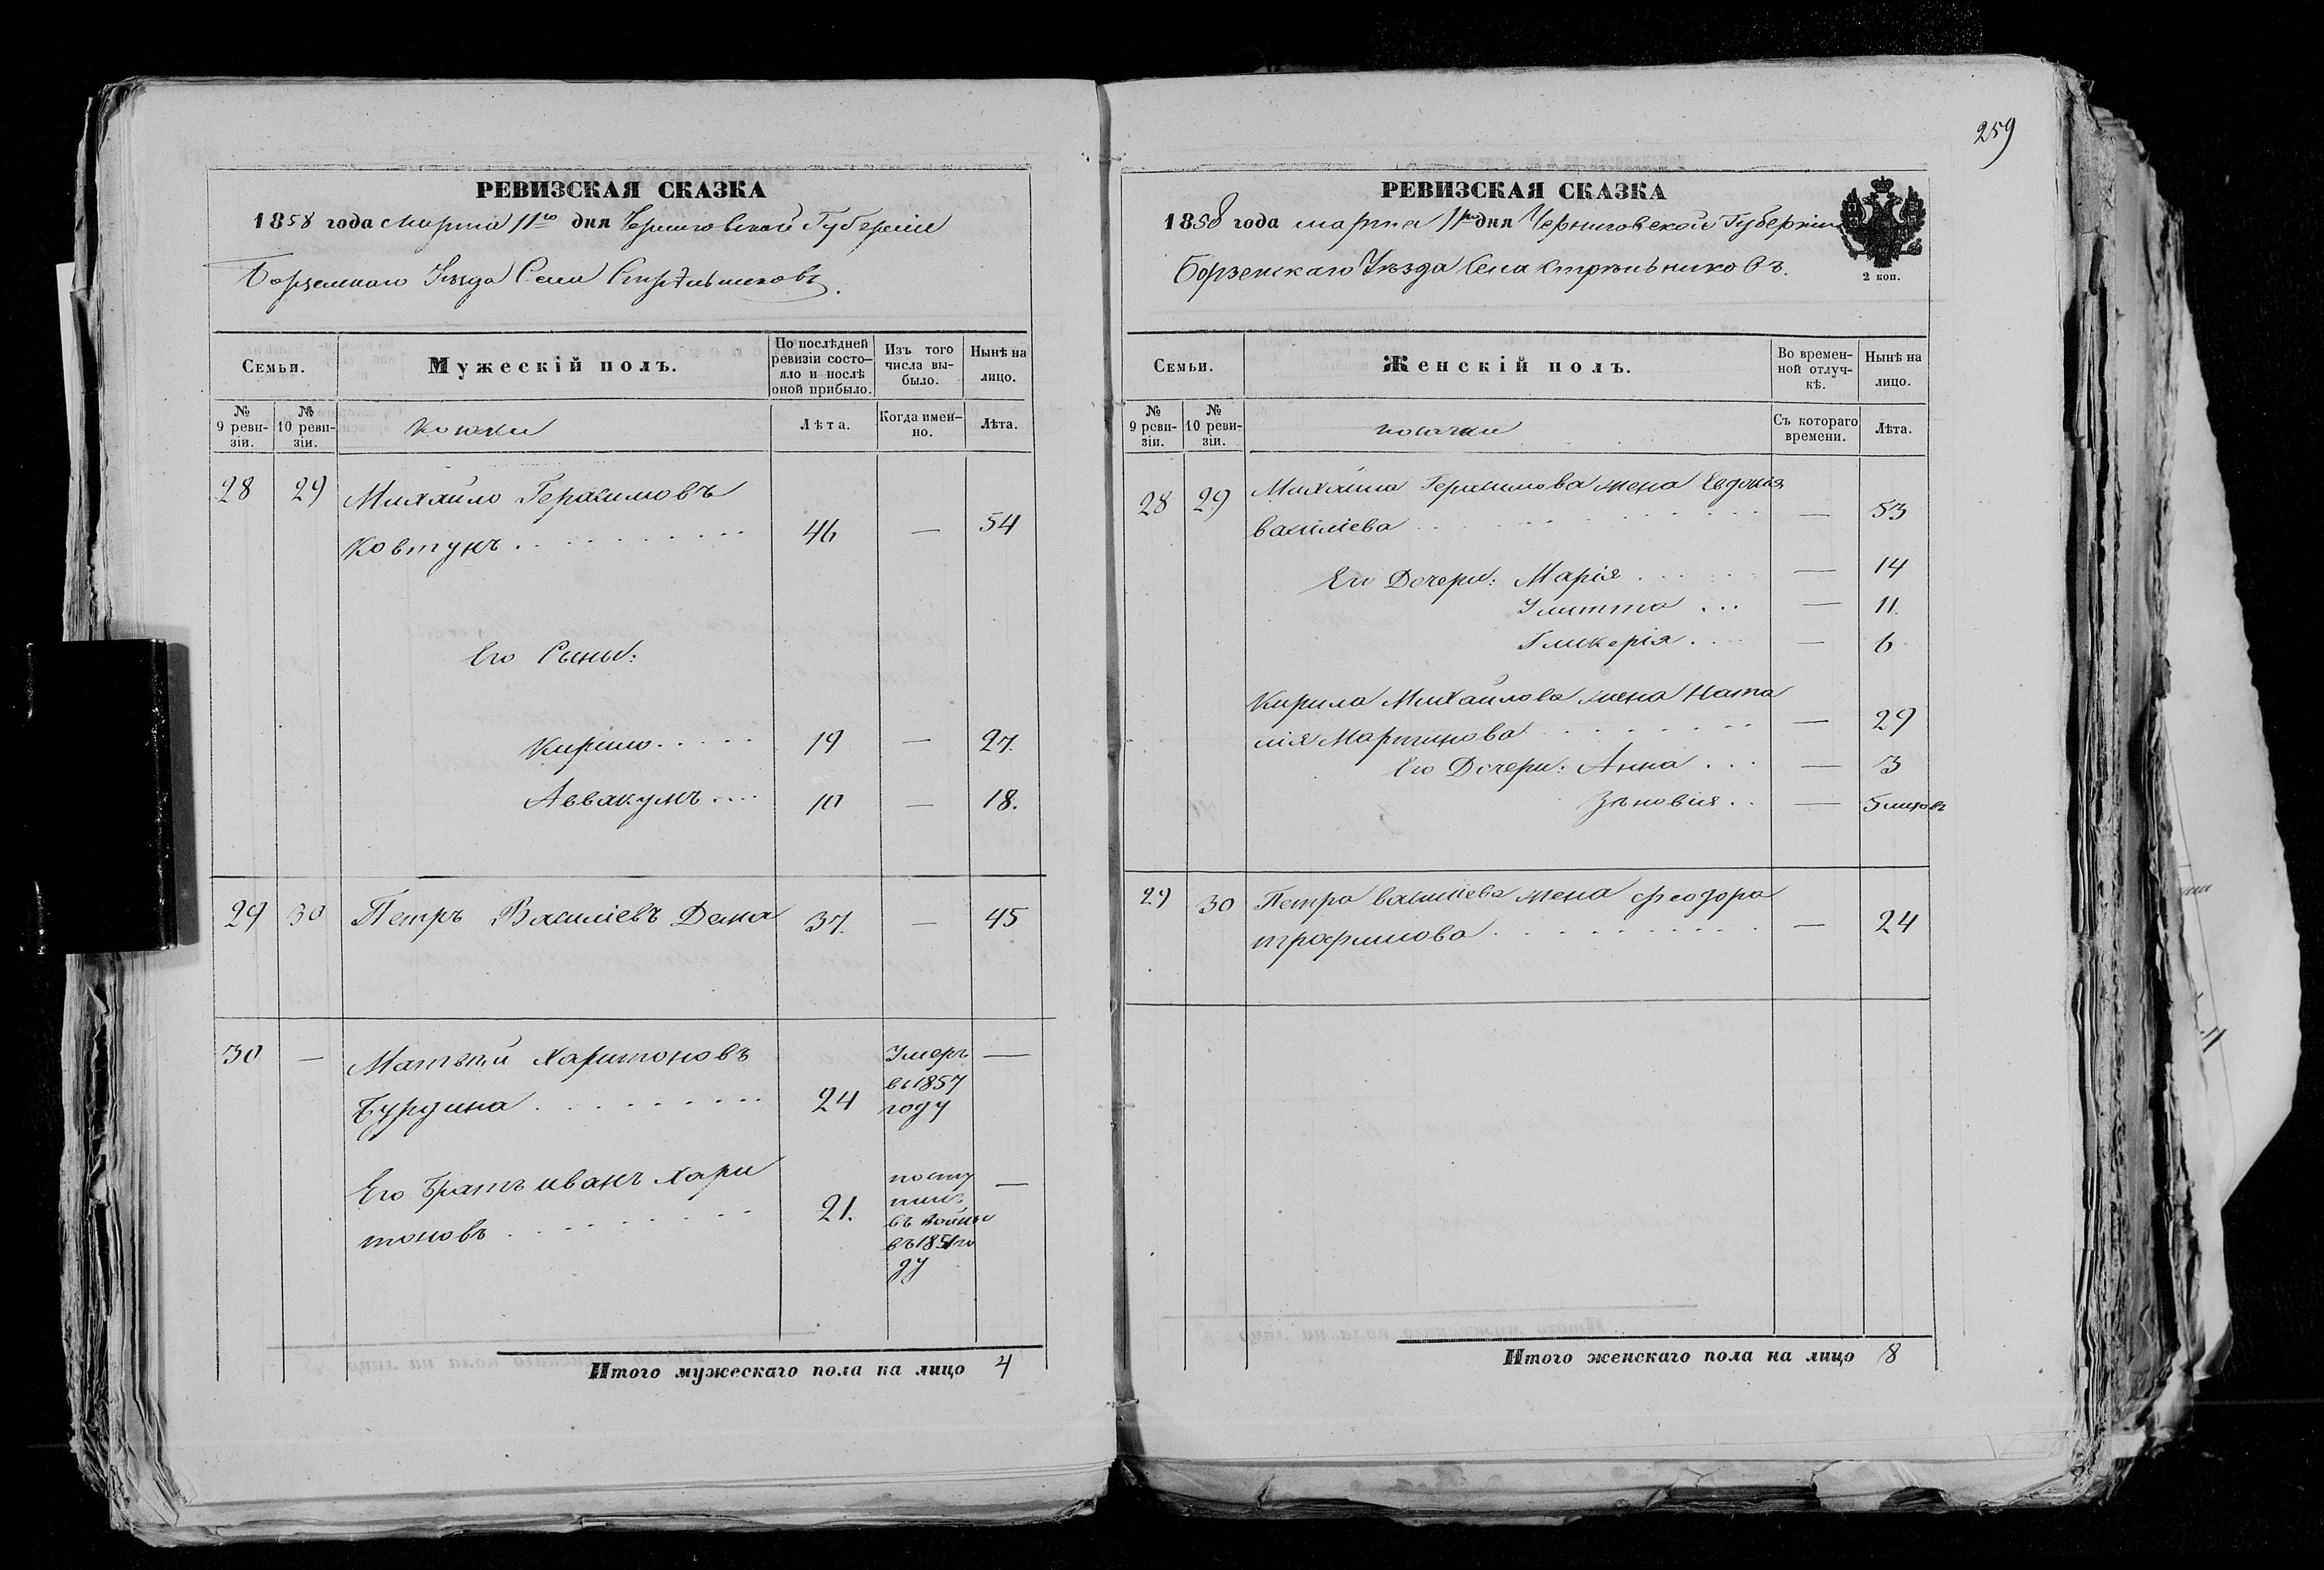 259
РЕВИЗСКАЯ СКАЗКА
1858 года марта 11го дня Черниговской Губерніи
Борзенскаго Уѣзда Села Стрѣльниковъ.
Семьи.
Мужескій полъ.
По послѣдней ревизіи состо—
яло и послѣ оной прибыло.
Изъ того числа вы—
было.
Нынѣ на лицо.
№ 9 реви-
зіи.
№ 10 реви-
зіи.
Лѣта.
Когда имен—
но.
Лѣта.
28 29 Михайло Герасимовъ
Ковтунъ . . . . . . . . . . 46 — 54
Его Сыны:
Кирило. . . . . 19 — 27.
Аввакумъ . . . . 10 — 18.
29 30 Петръ Василіевъ Дема 37. — 45
30 — Матвѣй Харитоновъ
24
Умеръ
въ 1857
году
—
Его Братъ иванъ Хари
тоновъ . . . . . . . . 21.
посту
пилъ
въ
ду
—
Итого мужескаго пола на лицо 4
РЕВИЗСКАЯ СКАЗКА
1858 года марта 11го дня Черниговской Губерніи
Борзенскаго Уѣзда Села Стрѣльниковъ.
2 коп.
Семьи.
Женскій полъ.
Во времен—
ной отлуч—
кѣ.
Нынѣ на лицо.
№ 9 реви-
зіи.
№ 10 реви-
зіи.
Съ котораго времени.
Лѣта.
28 29 Михайла Герасимова жена Евдокія
василіева . . . . . . . . . . — 53
Его Дочери: Марія . . . . . — 14
Улитта . . . — 11.
Гликерія . . . . — 6
Кирила Михайлова жена Ната
лія Мартинова . . . . . . . — 29
Его Дочери: Анна . . . — 3
Зѣновия . . — 5
29 30 Петра василіева жена феодора
трофимова . . . . . . . . . . — 24
Итого женскаго пола на лицо 8